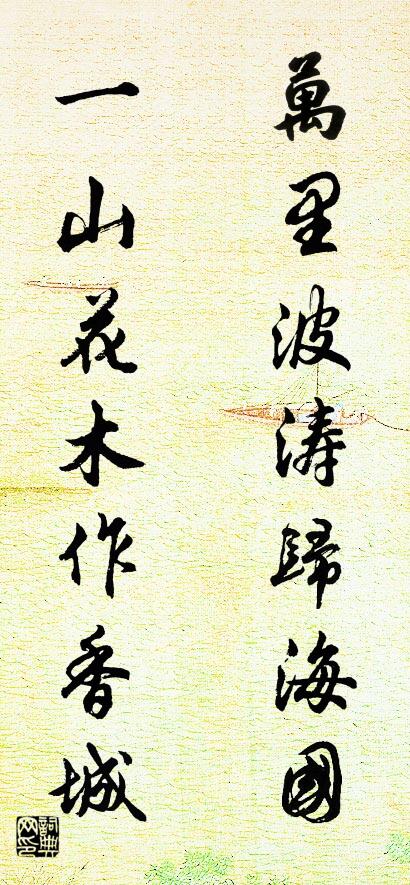 萬里波涛歸海國
一山花木作香城
詞典网印